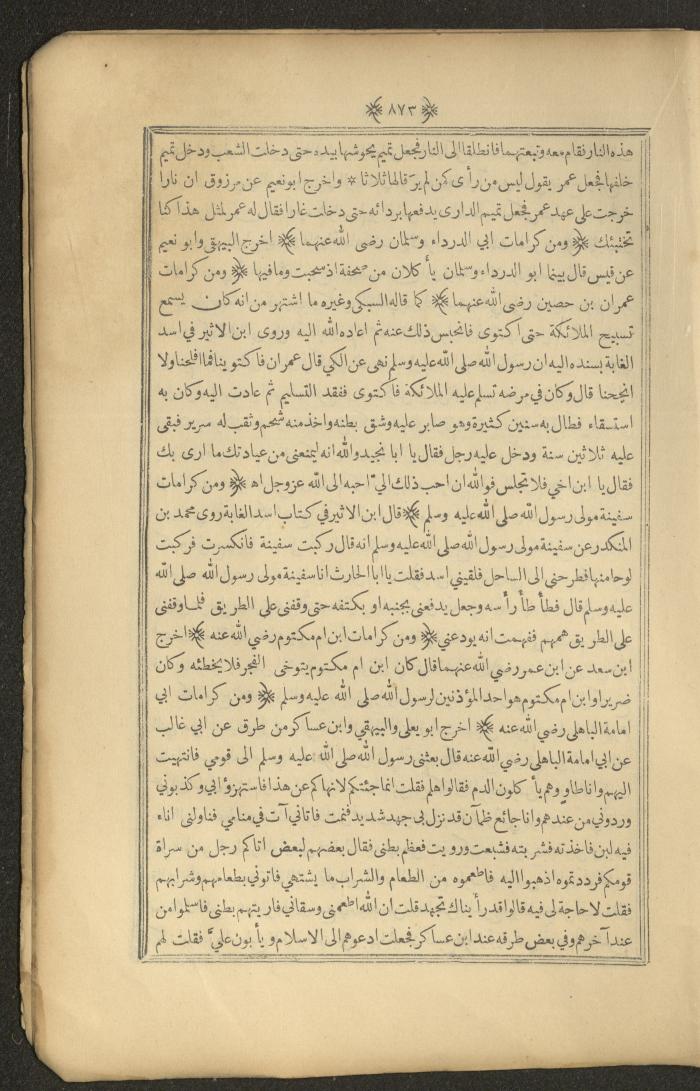 ﴿ ٨٧٣ ﴾
هذه النار نقام معه وتبعتهما فانطلقا الى النار فجعل تميم يحوشها بيده حتى دخلت الشعب ودخل تميم
خلفها فجعل عمر يقول ليس من رأى كن لم ير قالها ثلاثا * واخرج ابو نعيم عن مرزوق ان نارا
خرجت على عهد عمر فجعل تميم الدارى يدفعها بردائه حتى دخلت غارا فقال له عمر لمثل هذا كنا
نختبئك ﴿ ومن كرامات ابي الدرداء وسلمان رضى الله عنهما ﴾ اخرج البيهقى وابو نعيم
عن قيس قال بينما ابو الدرداء وسلمان يأكلان من صحفة اذ سبحت ومافيها ﴿ ومن كرامات
عمران بن حصين رضى الله عنهما ﴾ كما قاله السبكى وغيره ما اشتهر من انه كان يسمع
تسبيح الملائكة حتى اكتوى فانحبس ذلك عنه ثم اعاده الله اليه وروى ابن الاثير في اسد
الغابة بسنده اليه ان رسول الله صلى الله عليه وسلم نهى عن الكي قال عمران فاكتوينا فما افلحنا ولا
انجحنا قال وكان في مرضه تسلم عليه الملائكة فاكتوى ففقد التسليم ثم عادت اليه وكان به
استسقاء فطال به سنين كثيرة وهو صابر عليه وشق بطنه واخذ منه شحم وثقب له سرير فبقى
عليه ثلاثين سنة ودخل عليه رجل فقال يا ابا نجيد والله انه ليمنعنى من عيادتك ما ارى بك
فقال يا ابن اخي فلا تجلس فوالله ان احب ذلك اليّ احبه الى الله عز وجل اه ﴿ ومن كرامات
سفينة مولى رسول الله صلى الله عليه وسلم ﴾ قال ابن الاثير في كتاب اسد الغابة روى محمد بن
المنكدر عن سفينة مولى رسول الله صلى الله عليه وسلم انه قال ركبت سفينة فانكسرت فركبت
لوحا منها فطرحنى الى الساحل فلقينى اسد فقلت يا ابا الحارث انا سفينة مولى رسول الله صلى الله
عليه وسلم قال فطأطأ رأسه وجعل يدفعنى بجنبه او بكتفه حتى وقفنى على الطريق فلما وقفنى
على الطريق همهم ففهمت انه يودعني ﴿ ومن كرامات ابن ام مكتوم رضي الله عنه ﴾ اخرج
ابن سعد عن ابن عمر رضي الله عنهما قال كان ابن ام مكتوم يتوخى الفجر فلا يخطئه وكان
ضريرا وابن ام مكتوم هو احد المؤذنين لرسول الله صلى الله عليه وسلم ﴿ ومن كرامات ابي
امامة الباهلى رضي الله عنه ﴾ اخرج ابو يعلى والبيهقي وابن عساكر من طرق عن ابي غالب
عن ابي امامة الباهلى رضي الله عنه قال بعثنى رسول الله صلى الله عليه وسلم الى قومي فانتهيت
اليهم وانا طاو وهم يأكلون الدم فقالوا هلم فقلت انما جئتكم لانهاكم عن هذا فاستهزؤا بي وكذبوني
وردوني من عندهم وانا جائع ظمآن قد نزل بي جهد شديد فنمت فاتاني آت في منامي فناولنى اناء
فيه لبن فاخذته فشربته فشبعت ورويت فعظم بطنى فقال بعضهم لبعض اتاكم رجل من سراة
قومكم فرددتموه اذهبوا اليه فاطعموه من الطعام والشراب ما يشتهي فاتوني بطعامهم وشرابهم
فقلت لا حاجة لى فيه قالوا قد رأيناك تجهد قلت ان الله اطعمنى وسقاني فاريتهم بطنى فاسلموا من
عند آخرهم وفي بعض طرقه عند ابن عساكر فجعلت ادعوهم الى الاسلام ويأبون عليّ فقلت لهم